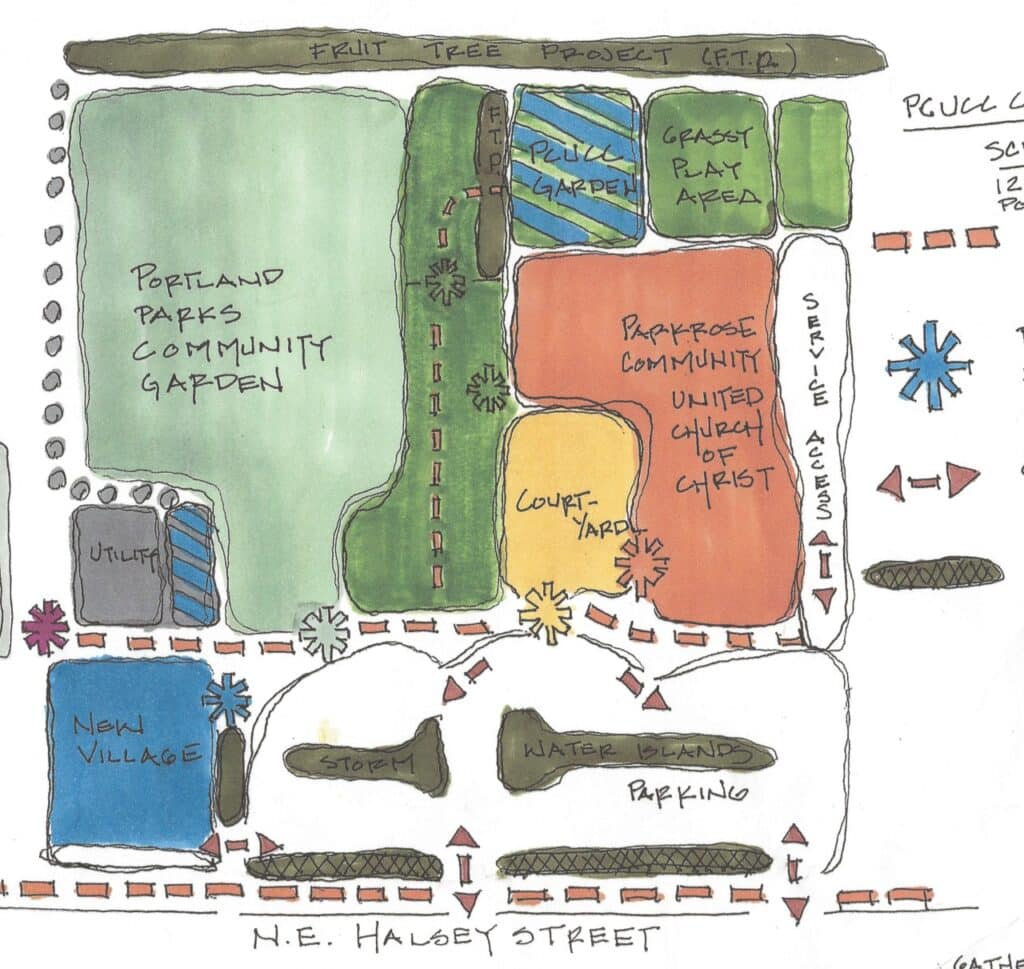 FRUIT TREE PROJECT (F.T.P.)
F.T.P.
PCUCC
GARDEN
GRASSY
PLAY
AREA
PORTLAND
PARKS
COMMUNITY
GARDEN
PARKROSE
COMMUNITY
UNITED
CHURCH
OF
CHRIST
SERVICE ACCESS
COURT-
YARD
UTILITY
NEW
VILLAGE
STORM WATER ISLANDS
PARKING
N.E. HALSEY STREET
PCUCC
12